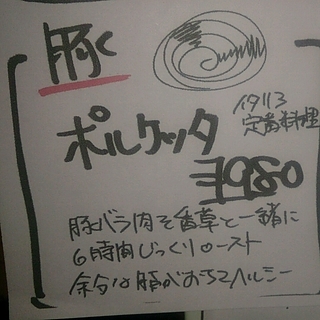 豚く
ポルケッタ
イタリア
定番料理
¥980
豚バラ肉を香草と一緒に
6時間じっくりロースト
余分な脂がおちてヘルシー